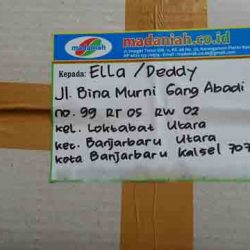 madaniah.co.id
madaniah
Kepada: Ella /Deddy
Jl. Bina Murni Gang Abadi
no. 99 RT 05 RW 02
kel. Loktabat Utara
kec. Banjarbaru Utara
kota Banjarbaru kalsel 707